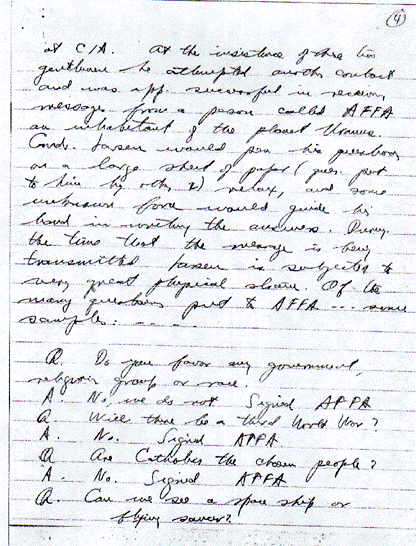 4
at CIA. At the insistence of these two
gentlemen he attempted another contact
and was app. successful in receiving
messages from a person called AFFA
an inhabitant of the planet Uranus.
Cmdr. Larsen would pen his questions
on a large sheet of paper (ques. put
to him by other 2) relax, and some
unknown force would guide his
hand in writing the answers. During
the time that the message is being
transmitted Larsen is subjected to
very great physical strain. Of the
many questions put to AFFA --- some
samples: - - - -
Q. Do you favor any government,
religious group or race.
A. No, we do not Signed AFFA
Q. Will there be a third World War?
A. No. Signed AFFA.
Q Are Catholics the chosen people?
A. No. Signed AFFA
Q. Can we see a space ship or
flying saucer?